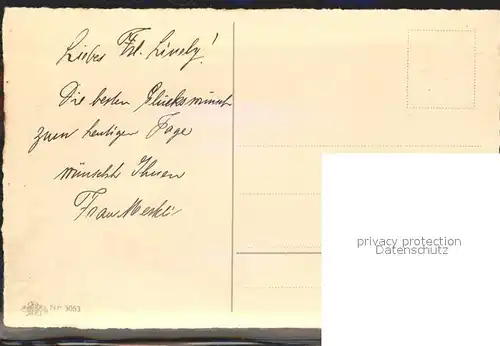 Liebes Frl. Lively!
Die besten Glückswünsch
zum heutigen Tage
wünscht Ihnen
Frau Merki
Nr 5053
privacy protection
Datenschutz